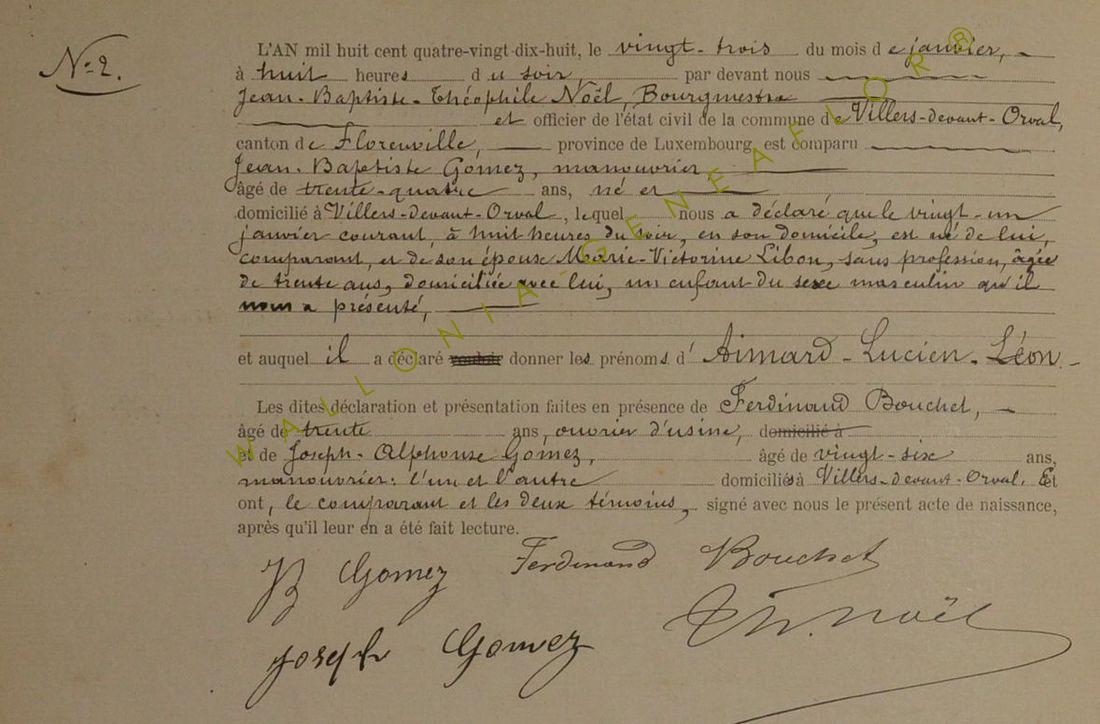 N° 2.
L'AN mil huit cent quatre-vingt-dix-huit, le vingt-trois du mois de janvier,
à huit heures du soir, par devant nous
Jean-Baptiste-Théophile Noël, Bourgmestre
et officier de l'état civil de la commune de Villers-devant-Orval,
canton de Florenville, province de Luxembourg, est comparu
Jean-Baptiste Gomez, manouvrier
âgé de trente-quatre ans, né en
domicilié à Villers-devant-Orval, lequel nous a déclaré que le vingt-un
janvier courant, à huit heures du soir, en son domicile, est né de lui,
comparant, et de son épouse Marie-Victorine Libon, sans profession, âgée
de trente ans, domiciliée avec lui, un enfant du sexe masculin qu'il
nous a présenté,
et auquel il a déclaré vouloir donner les prénoms d'Aimard-Lucien-Léon
Les dites déclaration et présentation faites en présence de Ferdinand Bouchet,
âgé de trente ans, ouvrier d'usine, domicilié à
et de Joseph-Alphonse Gomez, âgé de vingt-six ans,
manouvrier: l'un et l'autre domiciliés à Villers-devant-Orval. Et
ont, le comparant et les deux témoins, signé avec nous le présent acte de naissance,
après qu'il leur en a été fait lecture.
JB Gomez Ferdinand Bouchet
Joseph Gomez Th. Noël
WALLONIA-GENEAFLOR®